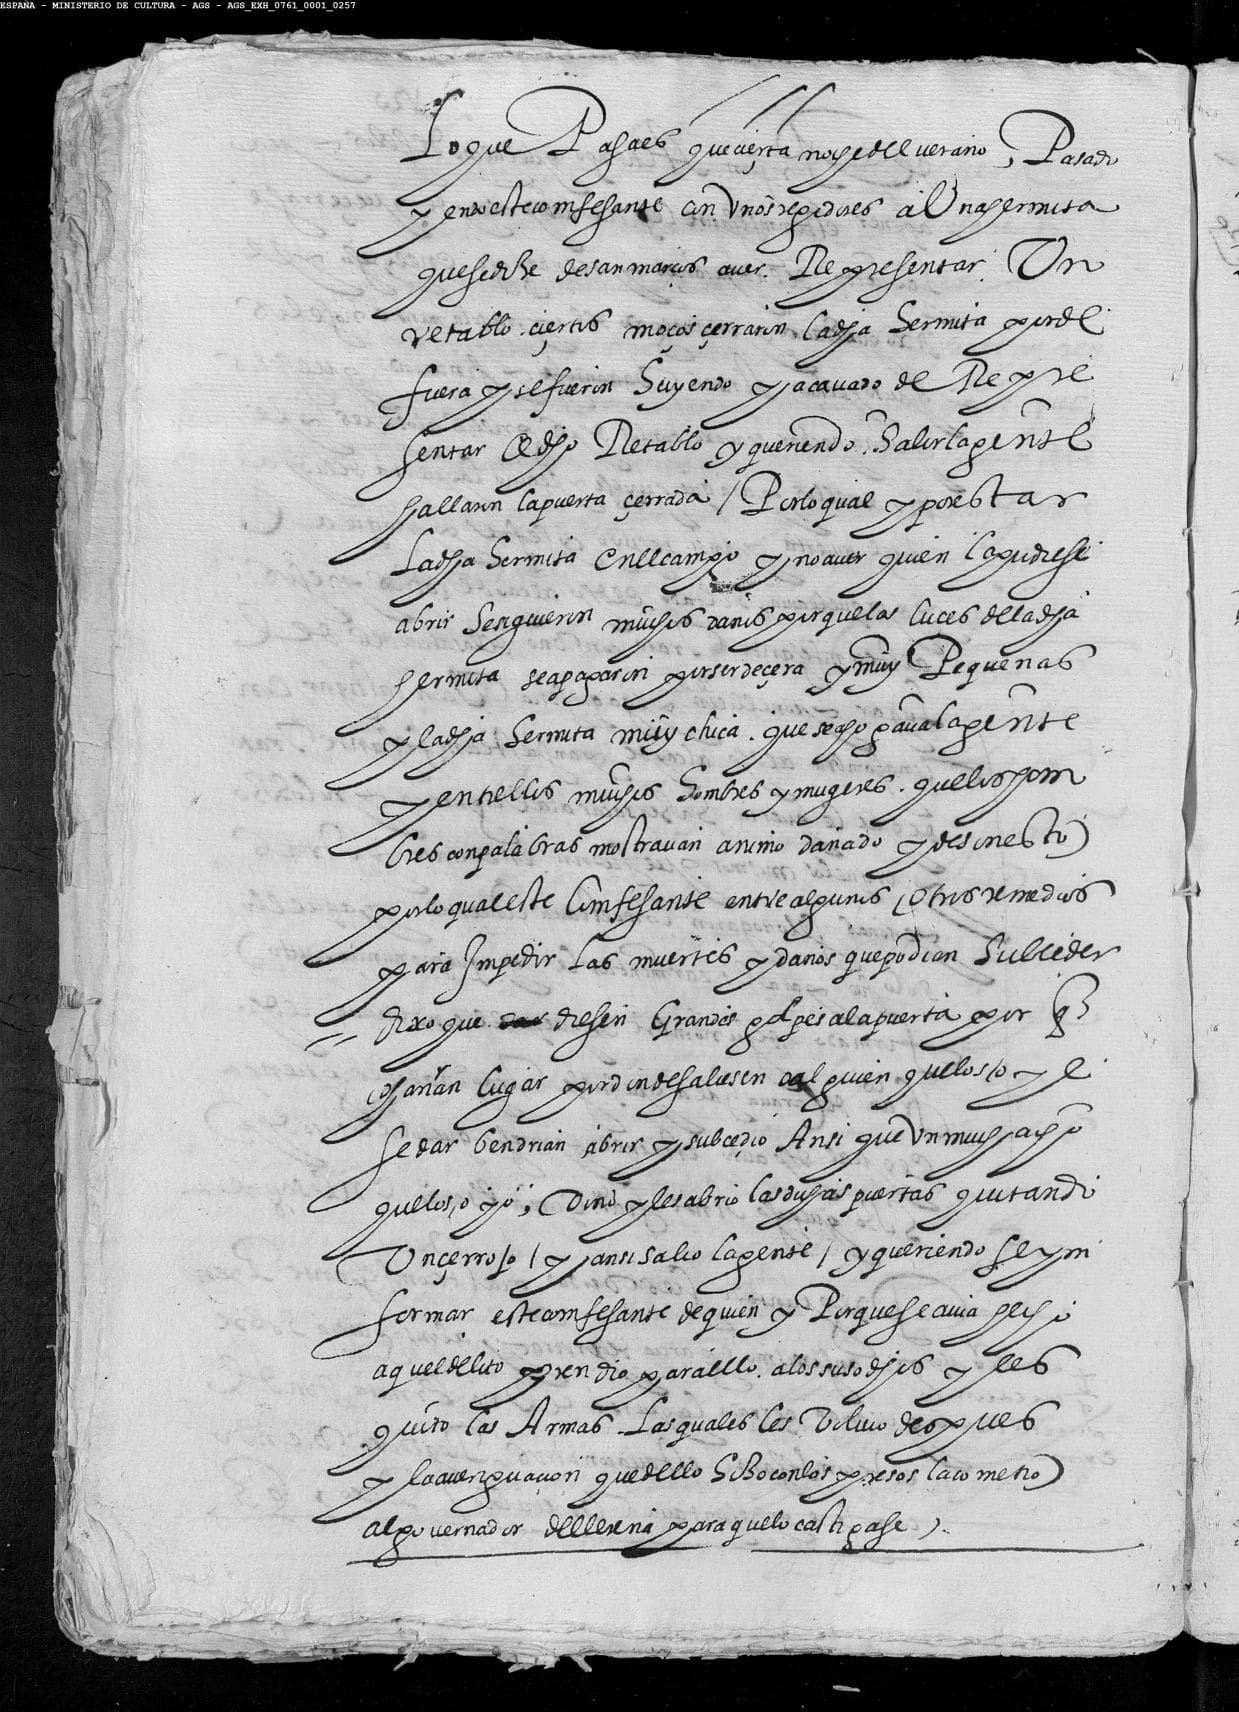 ESPAÑA - MINISTERIO DE CULTURA - AGS - AGS_EXH_0761_0001_0257
Lo que Pasa es que çierta noche del verano, Pasado
yendo este comfesante con Unos regidores a Una hermita
que se dize de san marcos a ver Representar Un
retablo çiertos moços çerraron la dha hermita por de
fuera y se fueron huyendo y acavado de Repre
sentar el dho Retablo y queriendo salir la gente
hallaron la puerta çerrada / Por lo qual y por estar
La dha hermita en el campo y no aver quien la pudiese
abrir se siguieron muchos daños porque las luces de la dha
hermita se apagaron por ser de çera y muy Pequenas
y la dha hermita muy chica que se aho gava la gente
y entrellos muchos hombres y mugeres que los hom
bres con palabras mostravan animo dañado y desonesto
por lo qual este Comfesante entre algunos otros remedios
para Impedir las muertes y daños que podian Subceder
dixo que diesen Grandes golpes a la puerta por q
o harian lugar por donde saliesen o alguien que los oye
se dar bendrian abrir y subcedio Ansi que Un muchacho
que los oyo, Vino y les abrio las dichas puertas quitando
Un çerrojo / y ansi salio la gente / y queriendo se yn
formar este comfesante de quien y Porque se avia hecho
aquel delito prendio para ello a los suso dhos y les
quito las Armas Las quales les Volvio despues
y la averiguaçion que dello hizo con los presos la cometio
al governador de llerena para que lo castigase